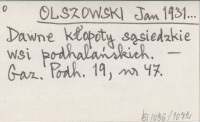 OLSZOWSKI Jan 1931...
Dawne kłopoty sąsiedzkie
wsi podhalańskich. —
Gaz. Podh. 19, nr 47.